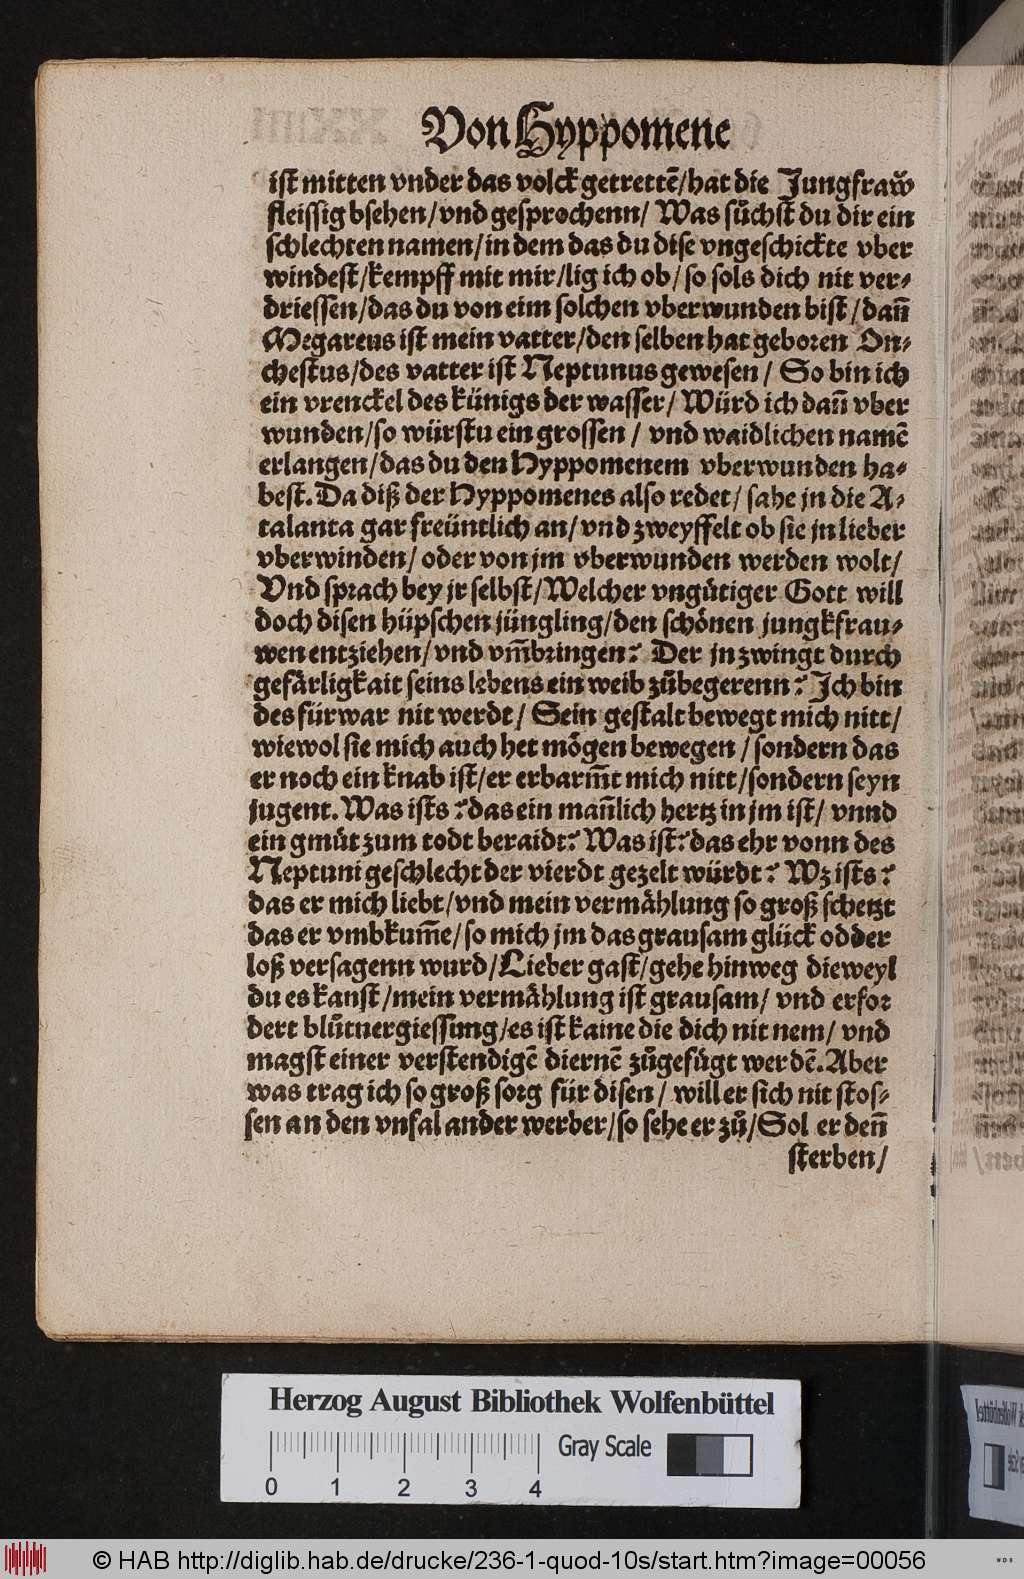 Von Hyppomene
ist mitten vnder das volck getrettē/hat die Jungfraw̆
fleissig bsehen/vnd gesprochenn/ Was sůchst du dir ein
schlechten namen/in dem das du dise vngeschickte vber
windest/kempff mit mir/lig ich ob/so sols dich nit ver⸗
driessen/das du von eim solchen vberwunden bist/dañ
Megareus ist mein vatter/den selben hat geboren On⸗
chestus/des vatter ist Neptunus gewesen/ So bin ich
ein vrenckel des künigs der wasser/ Würd ich dañ vber
wunden/so würstu ein grossen/ vnd waidlichen namē
erlangen/das du den Hyppomenem vberwunden ha⸗
best. Da diß der Hyppomenes also redet/ sahe jn die A⸗
talanta gar freüntlich an/vnd zweyffelt ob sie jn lieber
vberwinden/ oder von jm vberwunden werden wolt/
Vnd sprach bey jr selbst/Welcher vngütiger Gott will
doch disen hüpschen jüngling/den schönen jungkfrau⸗
wen entziehen/vnd vm̄bringen? Der jn zwingt durch
gefärligkait seins lebens ein weib zůbegerenn? Ich bin
des fürwar nit werdt/ Sein gestalt bewegt mich nitt/
wiewol sie mich auch het mögen bewegen/sondern das
er noch ein knab ist/er erbarm̄t mich nitt/sondern seyn
jugent. Was ists? das ein mañlich hertz in jm ist/ vnnd
ein gmüt zum todt beraidt? Was ist? das ehr vonn des
Neptuni geschlecht der vierdt gezelt würdt? Wz ists?
das er mich liebt/vnd mein vermählung so groß schetzt
das er vmbkum̄e/so mich jm das grausam glück odder
loß versagenn wurd/Lieber gast/gehe hinweg dieweyl
du es kanst/mein vermählung ist grausam/ vnd erfor
dert blůtuergiessung/es ist kaine die dich nit nem/ vnd
magst einer verstendigē diernē zůgefügt werdē. Aber
was trag ich so groß sorg für disen/ will er sich nit stos⸗
sen an den vnfal ander werber/so sehe er zů/Sol er deñ
sterben/
Herzog August Bibliothek Wolfenbüttel
0 1 2 3 4
Gray Scale
© HAB http://diglib.hab.de/drucke/236-1-quod-10s/start.htm?image=00056